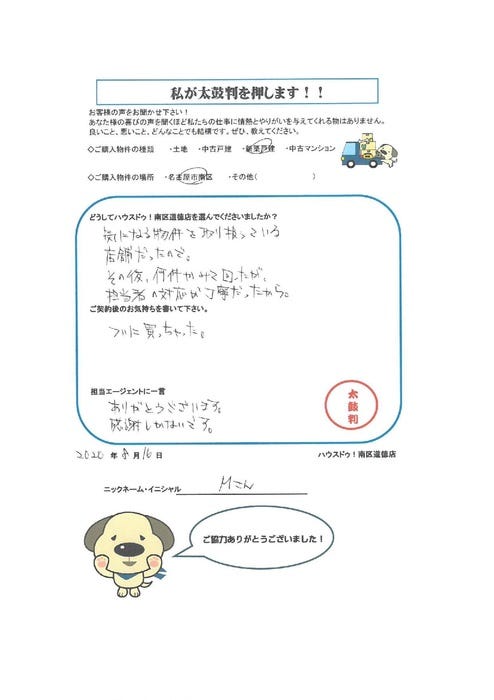 私が太鼓判を押します！！
お客様の声をお聞かせ下さい！
あなた様の喜びの声を聞くほど私たちの仕事に情熱とやりがいを与えてくれる物はありません。
良いこと、悪いこと、どんなことでも結構です。ぜひ、教えてください。
◇ご購入物件の種類 ・土地 ・中古戸建 ・新築戸建 ・中古マンション
◇ご購入物件の場所 ・名古屋市南区 ・その他( )
どうしてハウスドゥ！南区道徳店を選んでくださいましたか？
気になる物件を取り扱っている
店舗だったので。
その後、何件かみて回ったが、
担当者の対応が丁寧だったから。
ご契約後のお気持ちを書いて下さい。
ついに買っちゃった。
担当エージェントに一言
ありがとうございます。
感謝しかないです。
太鼓判
2020 年 8 月 16 日
ハウスドゥ！南区道徳店
ニックネーム・イニシャル Mさん
ご協力ありがとうございました！